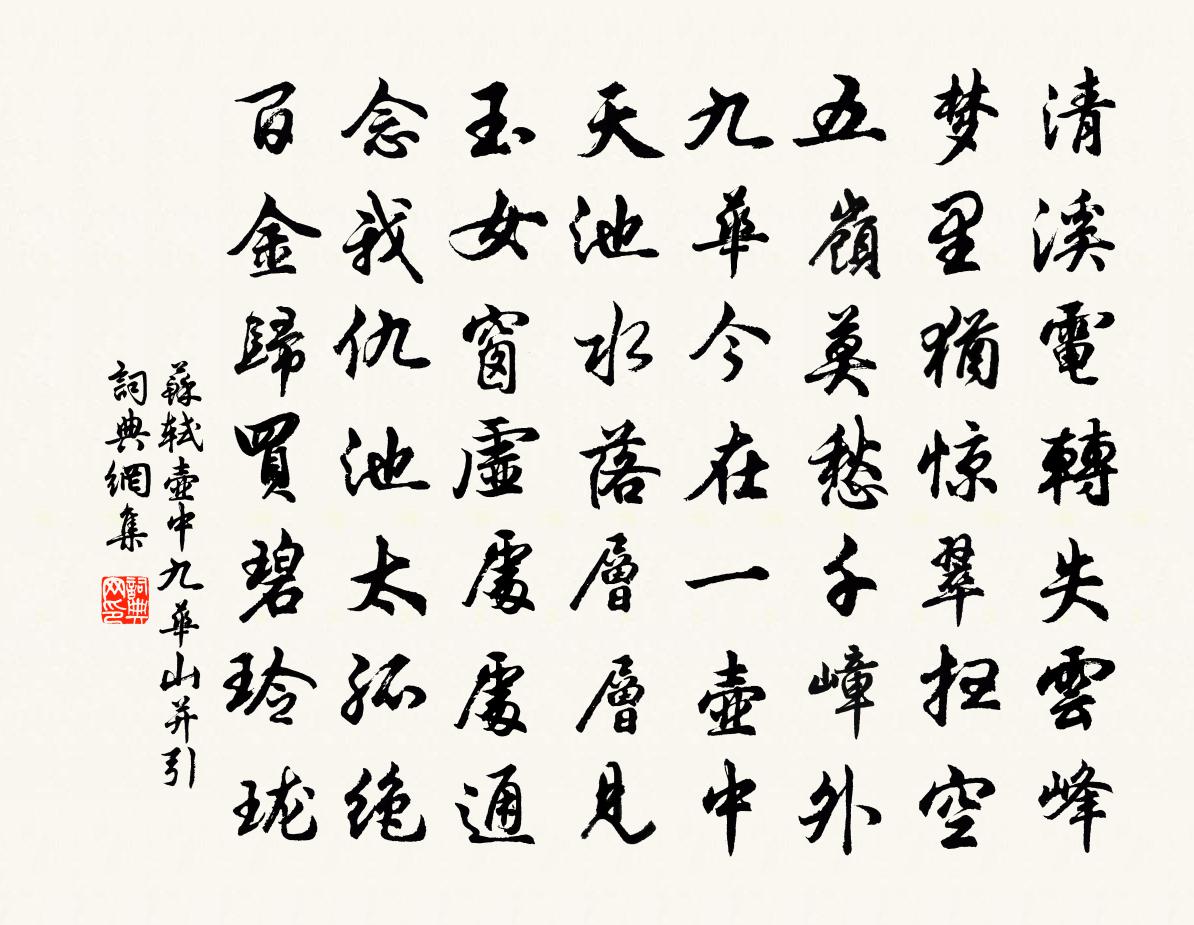 清溪電轉失雲峰
梦里猶惊翠扫空
五嶺莫愁千嶂外
九華今在一壺中
天池水落層層見
玉女窗虛處處通
念我仇池太孤絶
百金歸買碧玲珑
蘇轼壺中九華山并引
詞典網集
詞典
网印